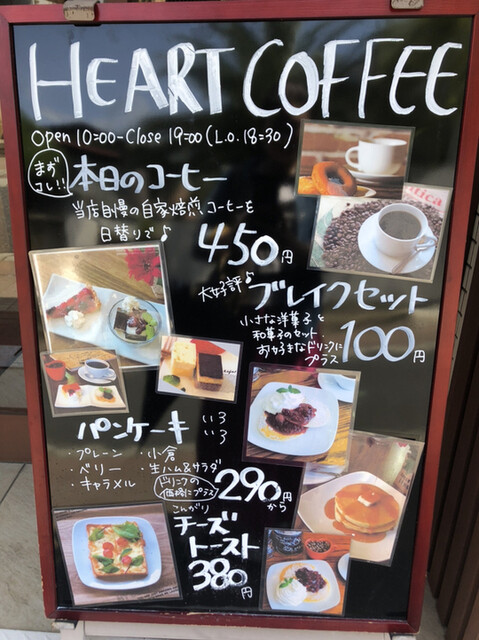 HEART COFFEE
Open 10=00-Close 19=00(L.O.18=30)
まずコレ!!
本日のコーヒー
当店自慢の自家焙煎コーヒーを
日替りで♪
450円
大好評♪
ブレイクセット
小さな洋菓子と
和菓子のセット
お好きなドリンクに
プラス 100円
パンケーキ いろいろ
・プレーン ・小倉
・ベリー ・生ハム&サラダ
・キャラメル
ドリンクの価格にプラス
290円から
こんがり
チーズ
トースト
380円